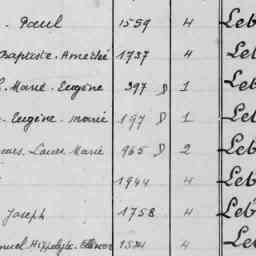 . Paul 1559 4 Leb
Baptiste. Amédée 1737 4 Leb
. Marie. Eugène 397 8 1 Leb
. Eugène. Marie 197 8 1 Leb
Louis Marie 965 8 2 Leb
1944 4 Leb
Joseph 1758 4 Leb
Hippolyte. 1574 4 Leb